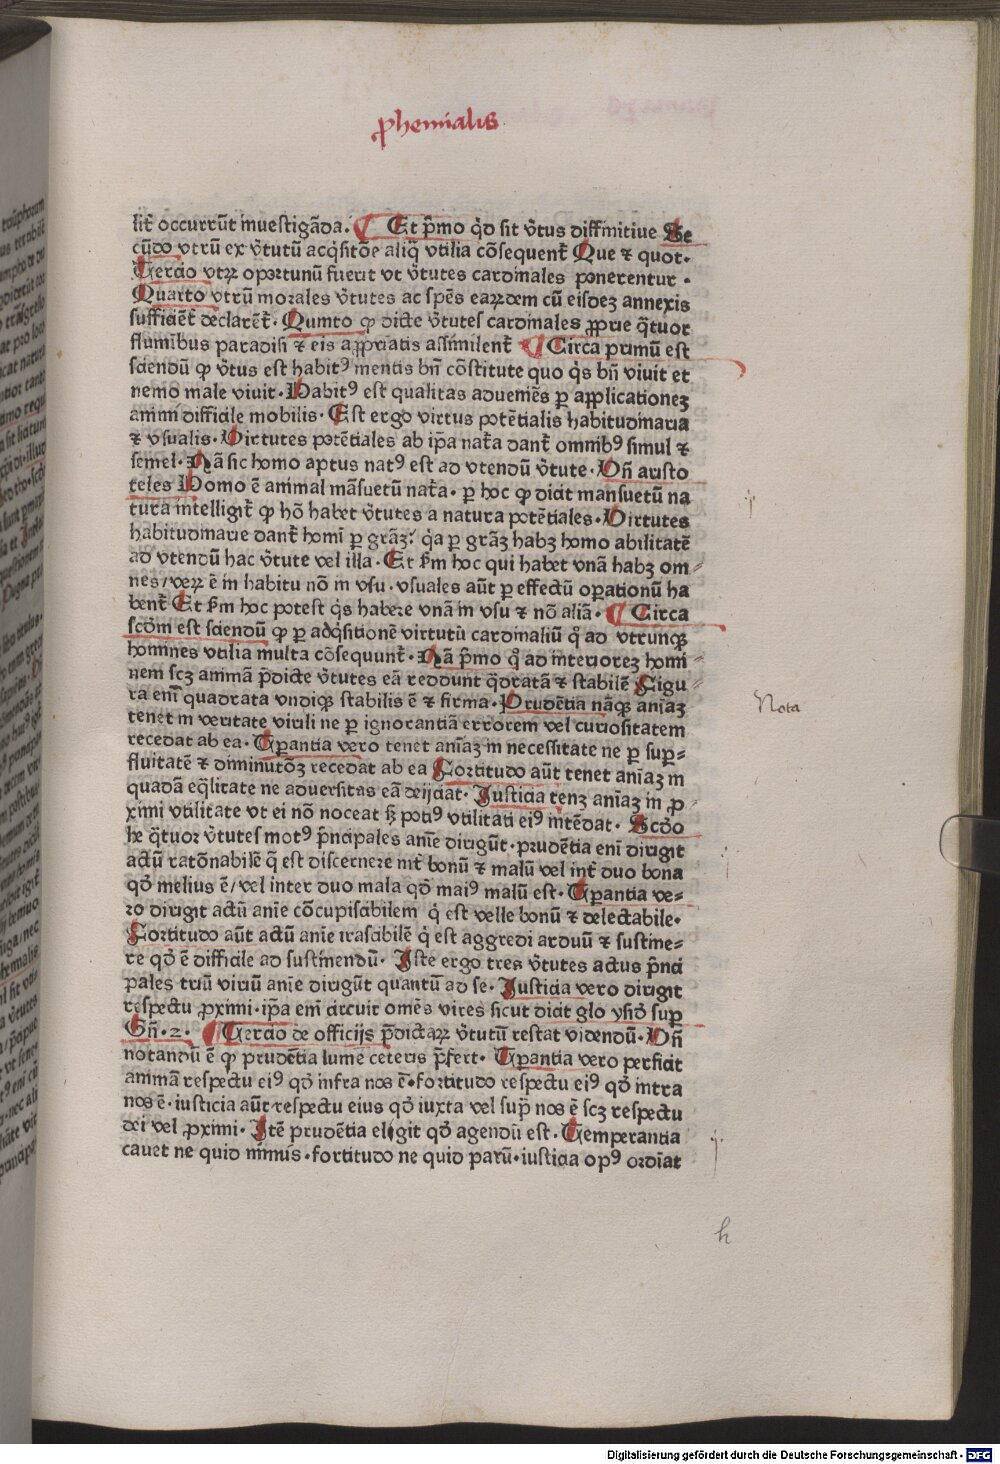 ꝓhemialis
lit̄ occurrūt inuestigāda. ¶ Et p̄mo qd̄ sit v̄tus diffinitiue Se
cūdo vtrū ex v̄tutū acq̇sitōe aliq̄ vtilia cōsequent̄ Que ⁊ quot.
Tercio vtrꝝ oportunū fuerit vt v̄tutes cardinales ponerentur.
Quarto vtrū morales v̄tutes ac sp̄es earꝝdem cū eisdeꝫ annexis
sufficiēt̄ declarēt̄. Quinto ꝙ dicte v̄tutes cardinales ꝓprie q̄tuor
fluminibus paradisi ⁊ eis aꝓpriatis assimilent̄ ¶ Circa primū est
sciendū ꝙ v̄tus est habitꝰ mentis bn̄ cōstitute quo q̇s bn̄ viuit et
nemo male viuit. Habitꝰ est qualitas adueniēs ꝑ applicationeꝫ
animi difficile mobilis. Est ergo virtus potētialis habitudinaria
⁊ vsualis. Virtutes potētiales ab ip̄a nat̄a dant̄ omnibꝰ simul ⁊
semel. Nā sic homo aptus natꝰ est ad vtendū v̄tute. Vn̄ aristo
teles Homo ē animal māsuetū nat̄a. ꝑ hoc ꝙ dicit mansuetū na
tura intelligit̄ ꝙ hō habet v̄tutes a natura potētiales. Virtutes
habitudinarie dant̄ homi ꝑ grāꝫ: q̇a ꝑ grāꝫ habꝫ homo abilitatē
ad vtendū hac v̄tute vel illa. Et ẜm hoc qui habet vnā habꝫ om-
nes/verꝝ ē in habitu nō in vsu. vsuales aūt ꝑ effectū operationū ha
bent̄ Et ẜm hoc potest q̇s habere vnā in vsu ⁊ nō aliā. ¶ Circa
scōm est sciendū ꝙ ꝑ adq̇sitionē virtutū cardinaliū q̄ ad vtrunqꝫ
homines vtilia multa cōsequunt̄. Nā p̄mo qͦ ad interiorez homi-
nem scꝫ animā p̄dicte v̄tutes eā reddunt q̄dratā ⁊ stabilē Figu-
ra eni quadrata vndiqꝫ stabilis ē ⁊ firma. Prudētia nāqꝫ aniaꝫ
tenet in veritate virili ne ꝑ ignorantiā errorem vel curiositatem
recedat ab ea. Tꝑantia vero tenet aniaꝫ in necessitate ne ꝑ suꝑ-
fluitatē ⁊ diminutōꝫ recedat ab ea Fortitudo aūt tenet aniaꝫ in
quadā eq̄litate ne aduersitas eā deijciat. Justicia tenꝫ aniaꝫ in ꝓ-
ximi vtilitate vt ei nō noceat sꝫ potiꝰ vtilitati eiꝰ intēdat. Scd̄o
he q̄tuor v̄tutes motꝰ p̄ncipales anie dirigūt. prudētia eni dirigit
actū ratōnabilē q̄ est discernere int̄ bonū ⁊ malū vel int̄ duo bona
qd̄ melius ē/vel inter duo mala qd̄ maiꝰ malū est. Tꝑantia ve-
ro dirigit actū anie cōcupiscibilem q̇ est velle bonū ⁊ delectabile.
Fortitudo aūt actū anie irascibilē q̇ est aggredi arduū ⁊ sustine-
re qd̄ ē difficile ad sustinendū. Iste ergo tres v̄tutes actus p̄nci
pales triū viriū anie dirigūt quantū ad se. Justicia vero dirigit
respectu ꝓximi. ip̄a eni circuit omēs vires sicut dicit glo ysid̄ suꝑ
Gn̄.2. ¶ Tercio de officijs p̄dictaꝝ v̄tutū restat videndū. Vn̄
notandū ē ꝙ prudētia lumē ceteris p̄fert. Tꝑantia vero perficit
animā respectu eiꝰ qd̄ infra nos ē. fortitudo respectu eiꝰ qd̄ intra
nos ē. iusticia aūt respectu eius qd̄ iuxta vel sup̄ nos ē scꝫ respectu
dei vel ꝓximi. Itē prudētia eligit qd̄ agendū est. Temperantia
cauet ne quid nimis. fortitudo ne quid parū. iusticia opꝰ ordiat
Nota
h
Digitalisierung gefördert durch die Deutsche Forschungsgemeinschaft - DFG